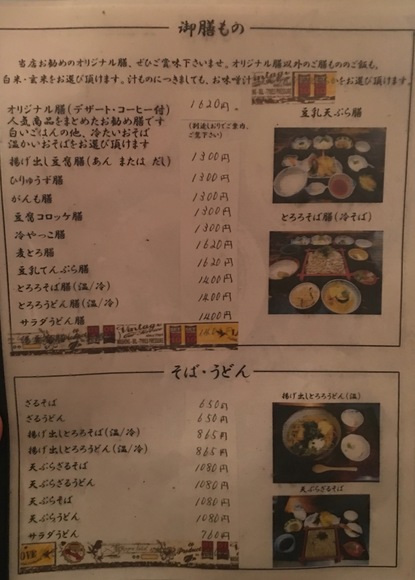 御膳もの
当店お勧めのオリジナル膳、ぜひご賞味下さいませ。オリジナル膳以外のご膳もののご飯も、
白米・玄米をお選び頂けます。汁ものにつきましても、お味噌汁 かをお選び頂けます。
オリジナル膳(デザート・コーヒー付) 1620円
人気商品をまとめたお勧め膳です
白いごはんの他、冷たいおそば
温かいおそばをお選び頂けます
(別途しおりでご案内、
ご覧下さい)
揚げ出し豆腐膳(あん または だし) 1300円
ひりゅうず膳 1300円
がんも膳 1300円
豆腐コロッケ膳 1300円
冷やっこ膳 1300円
麦とろ膳 1620円
豆乳てんぷら膳 1620円
とろろそば膳(温/冷) 1400円
とろろうどん膳(温/冷) 1400円
サラダうどん膳 1400円
豆乳天ぷら膳
とろろそば膳(冷そば)
Vintage
そば・うどん
ざるそば 650円
ざるうどん 650円
揚げ出しとろろそば(温/冷) 865円
揚げ出しとろろうどん(温/冷) 865円
天ぷらざるそば 1080円
天ぷらざるうどん 1080円
天ぷらそば 1080円
天ぷらうどん 1080円
サラダうどん 760円
揚げ出しとろろうどん(温)
天ぷらざるそば